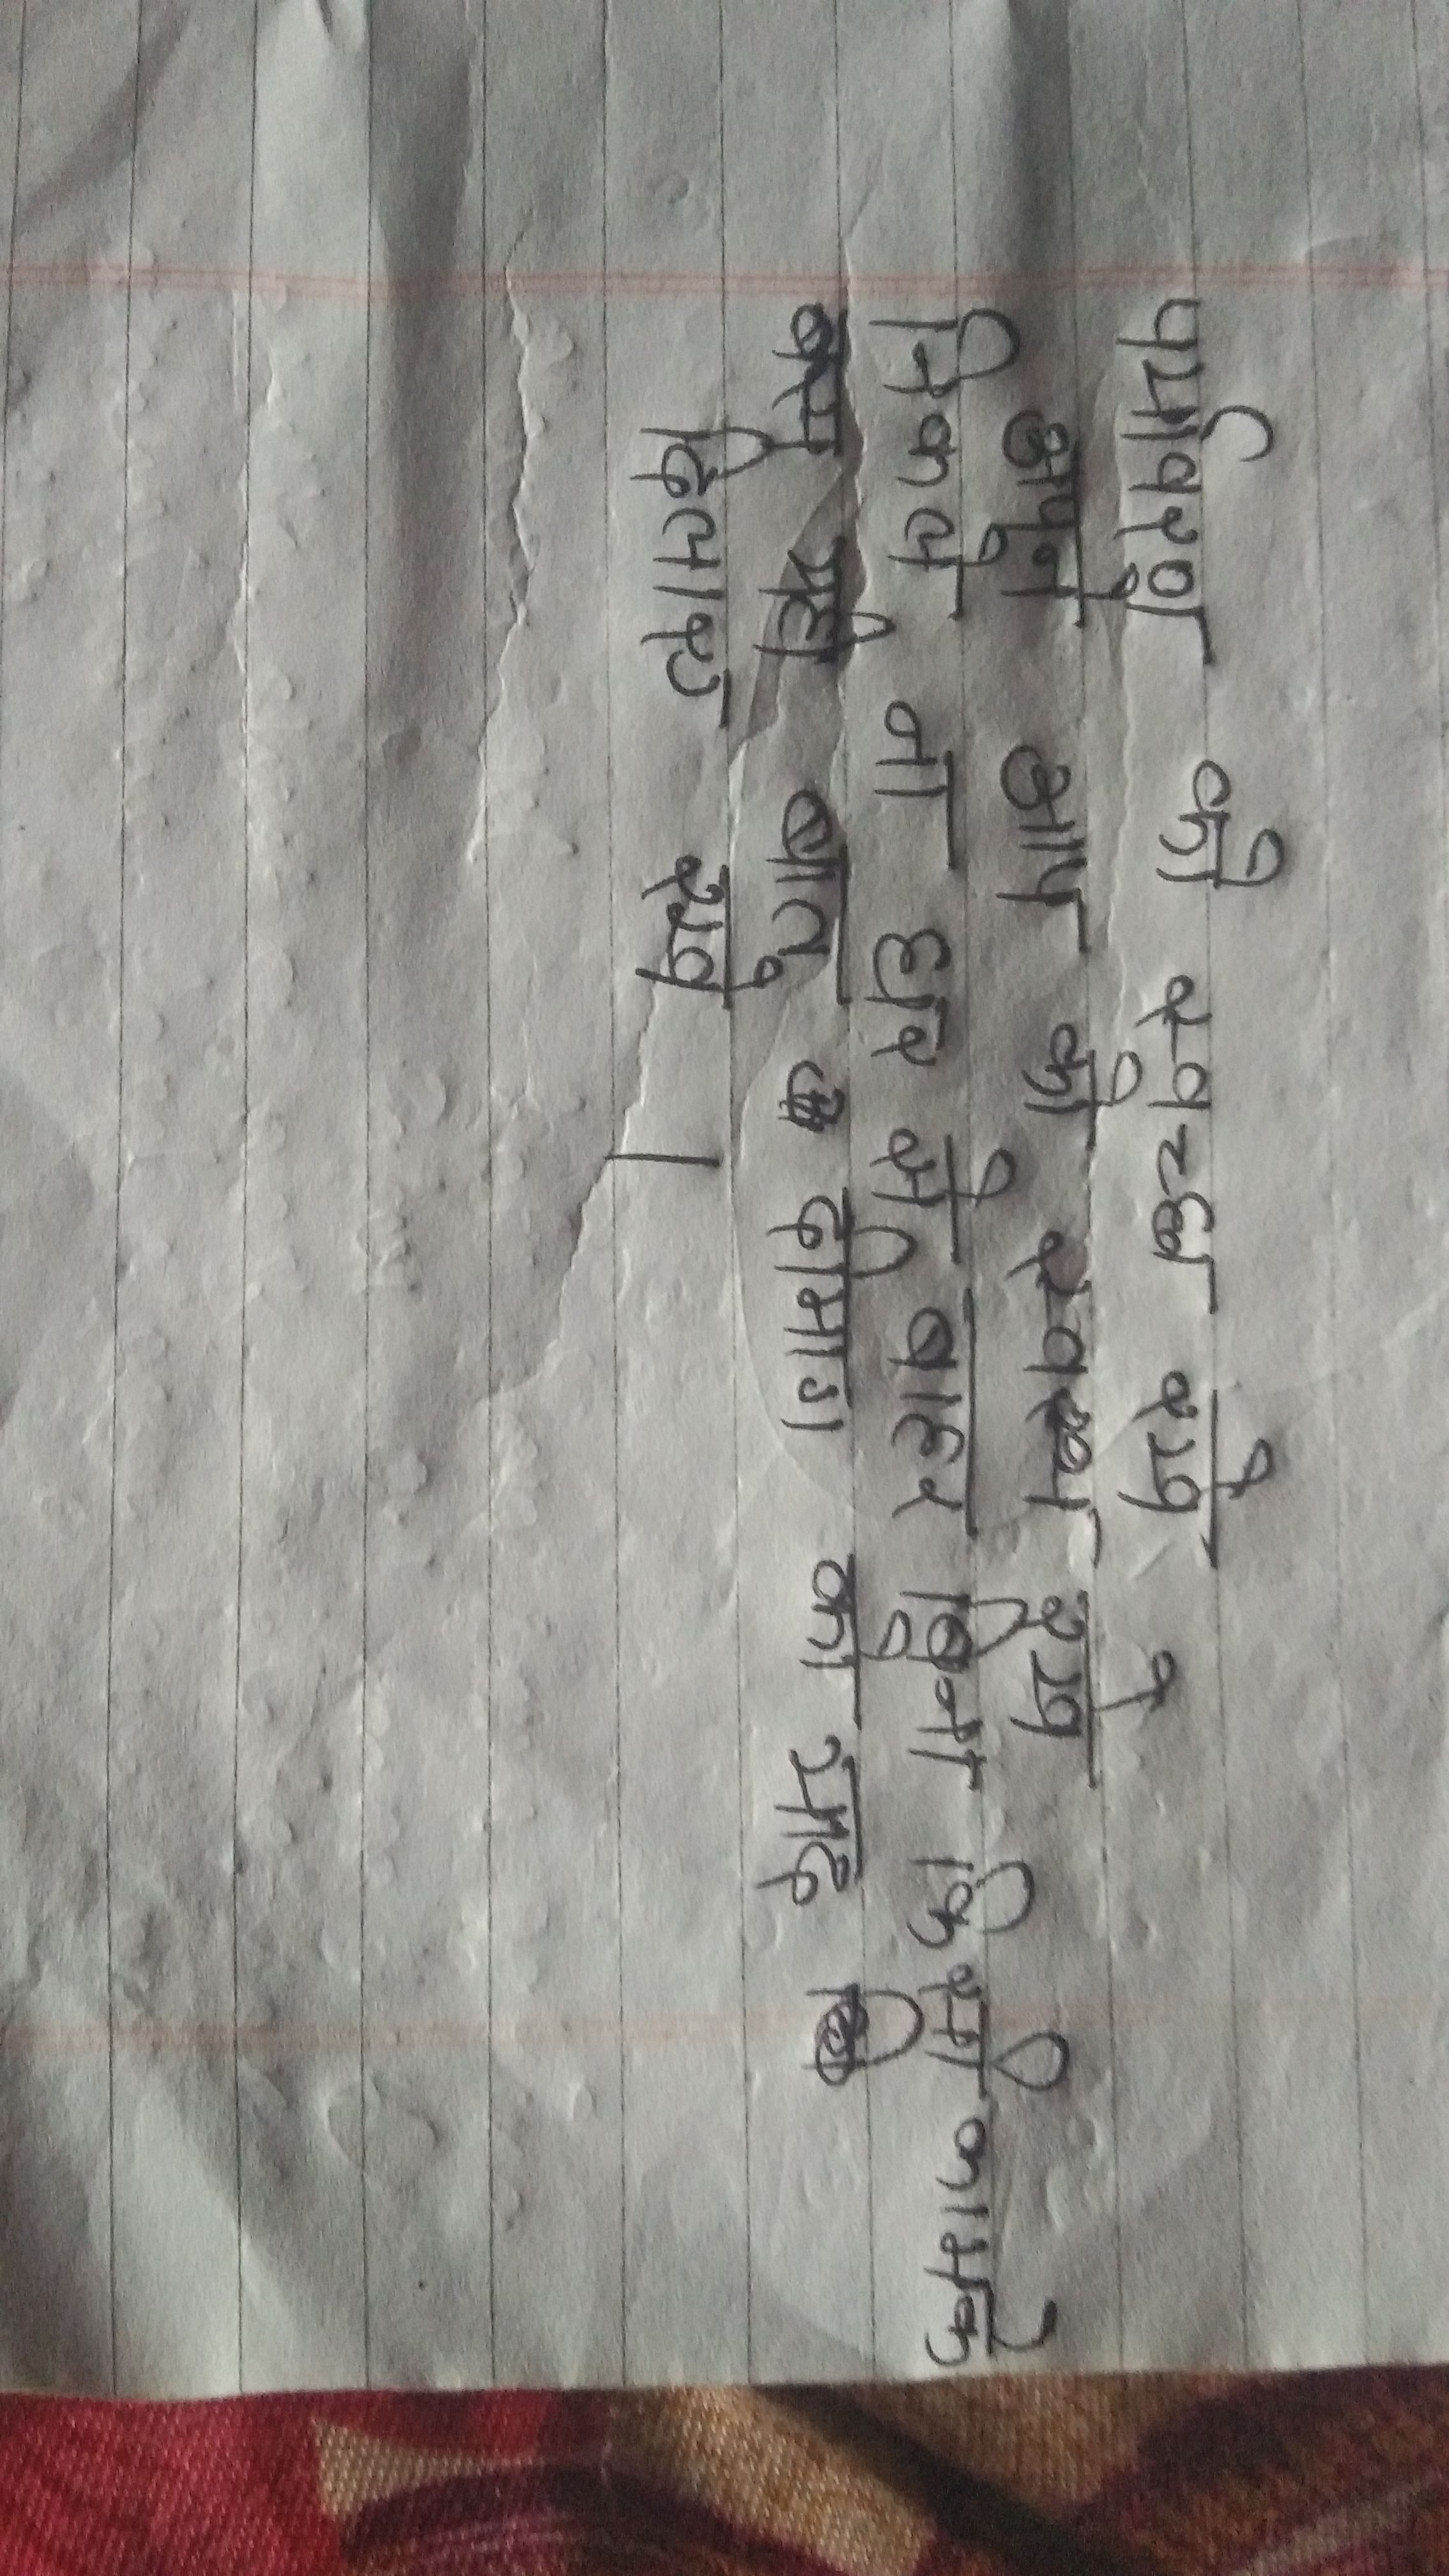 पर्यावरण को स्वच्छ रखे
अपने आप को स्वस्थ रखे
निकले ना घर से बाहर बिना किसी काम के
बस यही बात दीमाग को याद
दिलाए रखे ।